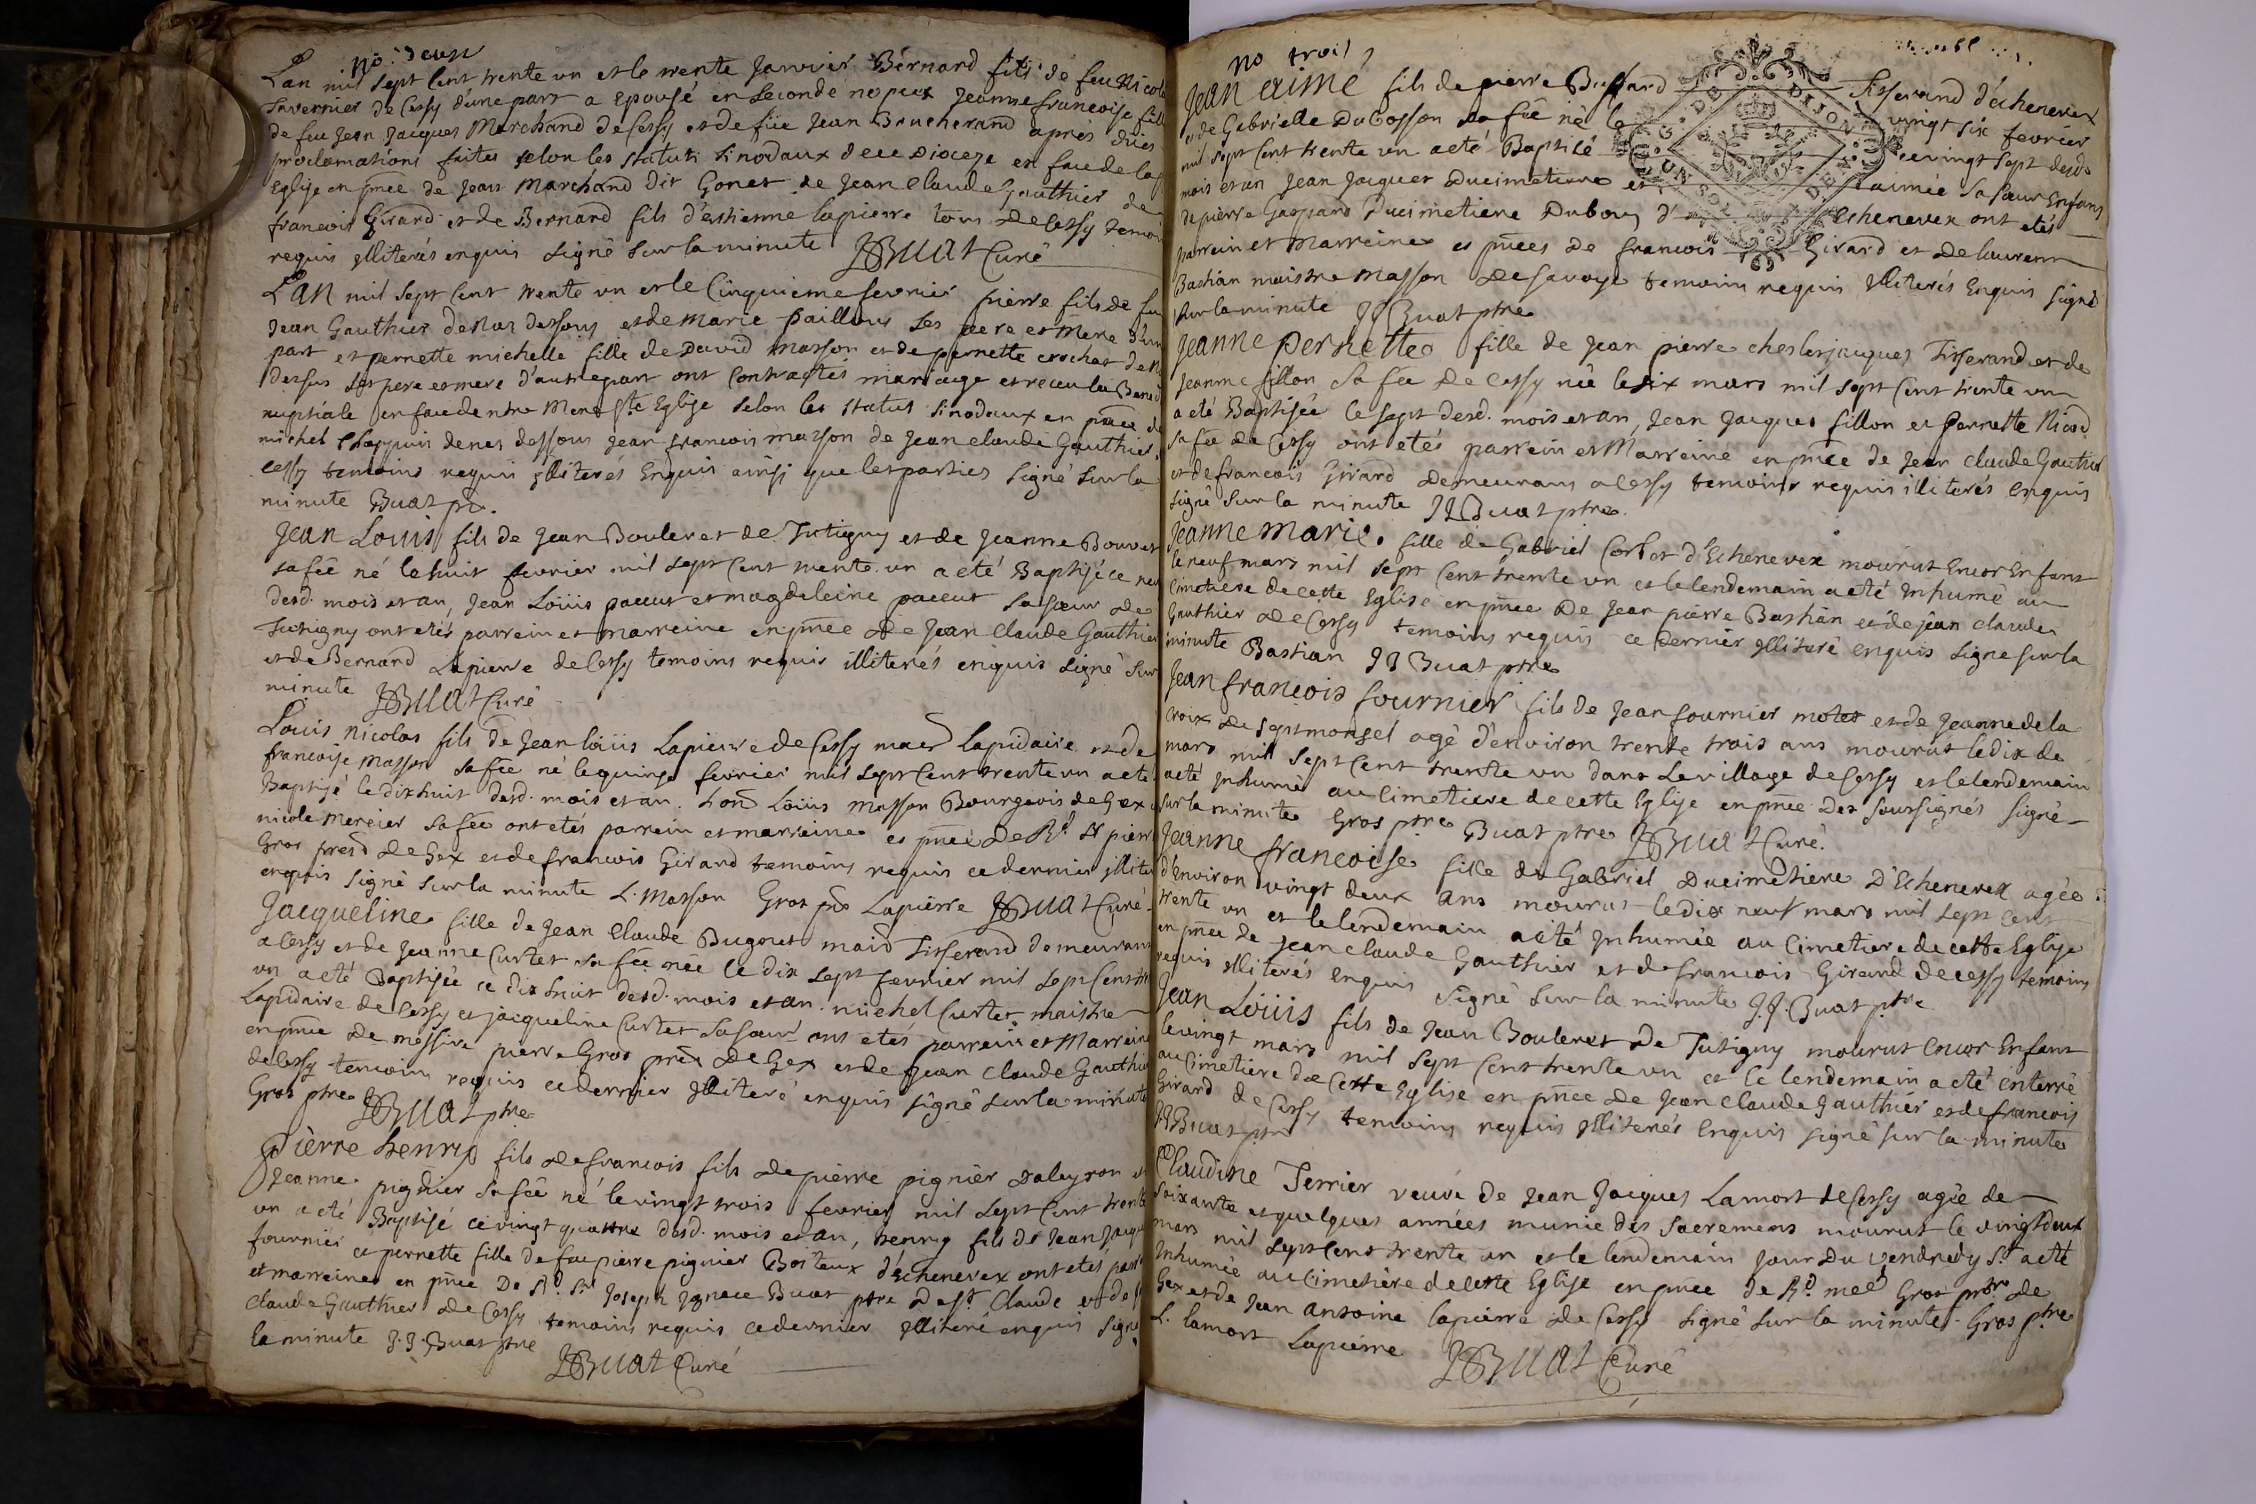 no. deux
L'an mil sept cent trente un et le trente janvier Bernard fils de feu Nicolas
Savernier de Cessy d'une part a epousé en seconde nopces Jeanne francoise fille
de feu Jean Jacques Marchand de Cessy et de füe Jean Boucherand après dües
proclamations faites selon les statuts sinodaux de ce Diocese en face de la
Eglise en pñce de Jean Marchand dit Gonet de Jean Claude Gauthier de
francois Girard et de Bernard fils d'estienne lapierre tous de Cessy temoins
requis illiterés enquis signé sur la minute JBuat Curé
L'an mil sept cent trente un et le cinquieme fevrier pierre fils de feu
Jean Gauthier de Naz dessous et de Marie paillous ses pere et mere d'une
part et pernette michelle fille de David masson et de pernette crochat de N
dessus ses pere et mere d'autre part ont contractés mariage et receu la Bened
nuptiale en face de ntre Mere Ste Eglise selon les statuts sinodaux en pñce de
michel Chappuis de nas dessous jean francois masson de jean claude Gauthier
Cessy temoins requis illiterés enquis ainsi que les parties signé sur la
minute Buat ptr.
Jean Louis fils de Jean Bouleret de Tutigny et de Jeanne Bouvet
sa fẽ né le huit fevrier mil sept cent trente un a eté Baptisé ce neu
desd. mois et an, Jean Loüis paccut et magdeleine paccut sa sœur de
Tutigny ont etés parrein et marreine en pñce de Jean Claude Gauthier
et de Bernard Lapierre de Cessy temoins requis illiterés enquis signé sur
minute JBuat Curé
Louis Nicolas fils de Jean loüis Lapierre de Cessy maed Lapidaire et de
francoise Masson sa fẽe né le quinze fevrier mil sept cent trente un a eté
Baptisé le dixhuit desd. mois et an. hond Loüis masson Bourgeois de Gex
nicole Mercier sa fẽe ont etés parrein et marreine es pñce de Rd Sr pierre
Gros presd de Gex et de francois Girard temoins requis ce dernier illite
enquis signé sur la minute L. Masson Gros ptre Lapierre JBuat Curé
Jacqueline fille de Jean Claude Bugnet maid Tisserand demeurant
a Cessy et de Jeanne Curtet sa fẽe née le dix sept fevrier mil sept cent tr
un a eté Baptisée ce dix huit desd. mois et an. michel Curtet maistre
Lapidaire de Cessy et jacqueline Curtet sa sœur ont etés parrein et Marreine
en pñce de messire pierre Gros prẽd de Gex et de jean Claude Gauthier
de Cessy temoins requis ce dernier illiteré enquis signé sur la minute
Gros ptre JBuat ptre
Pièrre henry fils de francois fils de pièrre pignièr d'aleyson et
Jeanne pignier sa fẽe né le vingt trois fevrier mil sept cent trente
un a eté Baptisé ce vingt quattre desd. mois et an, henry fils de Jean Jacques
fournier et pernette fille de feu pierre pignier Boiteux d'Echenevex ont etés parr
et marreine en pñce De Rd. Sr. Joseph Ignace Buat ptre de St Claude et de j
claude Gauthier de Cessy temoins requis ce dernier illiteré enquis signé
la minute J.J. Buat ptre
JBuat Curé
no trois
Jean Aimé fils de pierre Buffard Tisserand d'Echenevex
et de Gabrielle Dubosson sa fẽe né le vingt six fevrier
mil sept cent trente un a eté Baptisé ce vingt sept desd.
mois et an Jean Jacques Ducimetiere et l'aimée sa sœur Enfans
de pièrre Gaspard Ducimetiere Dubourg d'Echenevex ont etés
parrein et Marreine es pñces de francois Girard et de laurent
Bastian maistre masson de savoye temoins requis illiterés Enquis signé
sur la minute JJBuat ptre
Jeanne Pernette fille de Jean pierre cheslesjacques Tisserand et de
Jeanne fillon sa fẽe de Cessy née le six mars mil sept cent trente un
a eté Baptisée le sept desd. mois et an, Jean Jacques fillon et Pernette Nicod
sa fẽe de Cessy ont etés parrein et Marreine en pñce de Jean claude Gauthier
et de francois Girard demeurans a Cessy temoins requis illiterés enquis
signé sur la minute JJBuat ptre
Jeanne Marie fille de Gabriel Corbet d'Echenevex mourut Encor Enfant
le neuf mars mil sept cent trente un et le lendemain a eté Inhumé au
Cimetiere de cette Eglise en pñce de Jean pierre Bastian et de jean claude
Gauthier de Cessy temoins requis ce dernier illiteré enquis signé sur la
minute Bastian JJBuat ptre
Jean francois fournier fils de Jean fournier motet et de Jeanne de la
croix de Septmonsel agé d'environ trente trois ans mourut le dix de
mars mil sept cent trente un dans le village de Cessy et le lendemain
a eté Inhumé au Cimetiere de cette Eglise en pñce des soussignés signé
sur la minute Gros ptre Buat ptre JBuat Curé.
Jeanne francoise fille de Gabriel Ducimetière D'Echenevex agée
d'environ vingt deux ans mourut le dix neuf mars mil sept cent
trente un et le lendemain a eté Inhumée au Cimetiere de cette Eglise
en pñce de Jean Claude Gauthier et de francois Girard de Cessy temoins
requis illiterés enquis signé sur la minute J.J. Buat ptre
Jean Loüis fils de Jean Bouleret de Tutigny mourut Encor Enfant
le vingt mars mil sept cent trente un et le lendemain a eté enterré
au Cimetiere de Cette Eglise en pñce de Jean Claude Gauthier et de francois
Girard de Cessy temoins requis illiterés Enquis signé sur la minute
JJBuat ptre
Claudine Terrier veuve de Jean Jacques Lamort de Cessy agée de
soixante et quelques années munie des sacremens mourut le vingt deux
mars mil sept cent trente un et le lendemain jour Du vendredy St. a eté
Inhumée au Cimetière de cette Eglise en pñce de Rd. meſ Gros ptre de
Gex et de Jean Antoine lapierre de Cessy signé sur la minute Gros ptre
L. lamort Lapierre JBuat Curé